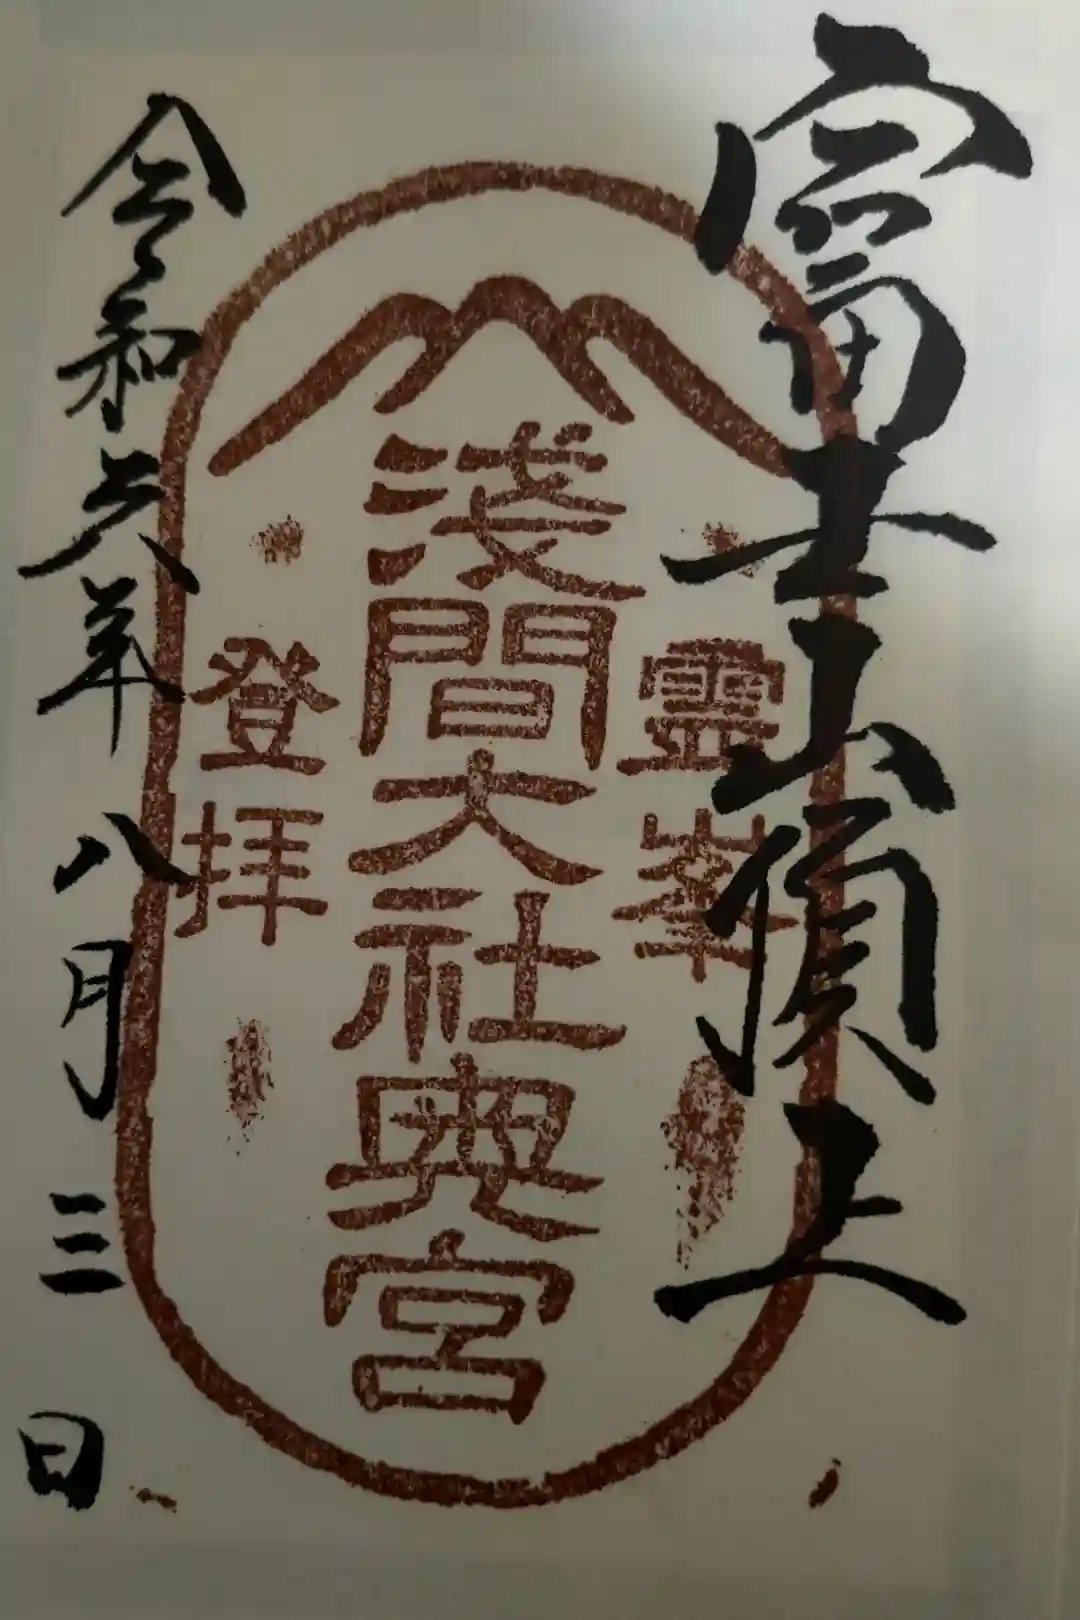 富士山頂上
靈峯
淺間大社奥宮
登拝
令和六年八月三日